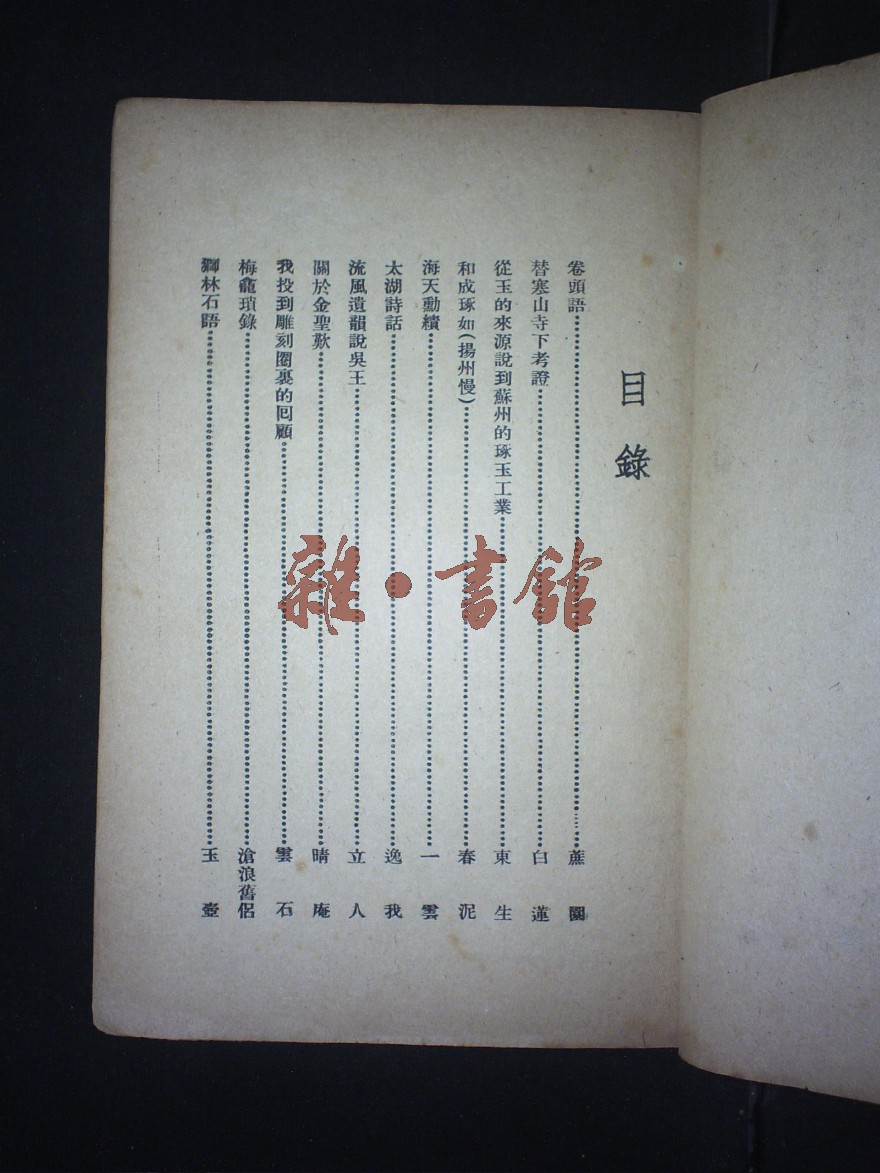 目錄
卷頭語……蔗園
替寒山寺下考證……白蓮
從玉的來源說到蘇州的琢玉工業……東生
和成琢如(揚州慢)……春泥
海天勳績……一雲
太湖詩話……逸我
流風遺韻說吳王……立人
關於金聖歎……晴庵
我投到雕刻圈裏的回顧……雲石
梅龕瑣錄……滄浪舊侶
獅林石語……玉壺
雜·書館